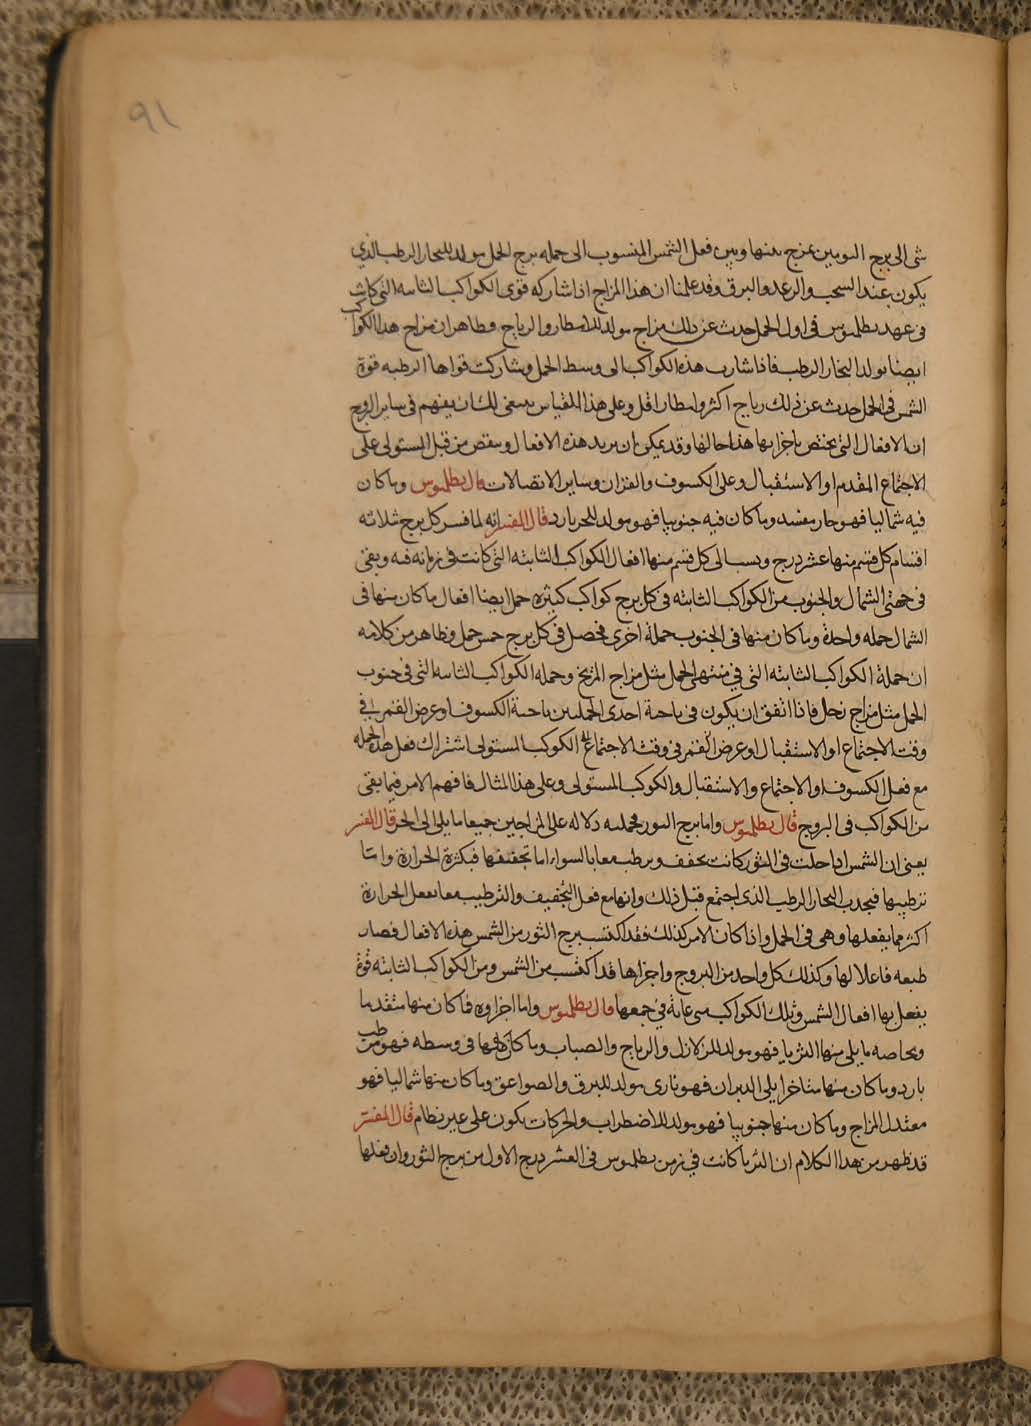 ٩١
شى الى برج الىوىىں ىمىزج ىىنها وبين فعل الشمس المنسوب الى جمله برج الحمل مولد للبخار الرطب الذي
يكون عند السحب والرعد والبرق وقد علمنا ان هذا المزاج اذا شاركه قوى الكواكب الثابته التي كانت
فى عهد بطلميوس فى اول الحمل حدث عن ذلك مزاج مولد للامطار والرياح وظاهر ان مزاج هذه الكواكب
ايضا يولد البخار الرطب فاذا سارت هذه الكواكب الى وسط الحمل وشاركت قواها الرطبه قوة
الشمس فى الحمل حدث عن ذلك رياح اكثر وامطار اقل وعلى هذا القياس ينبغى لك ان يفهم فى ساير البروج
ان الافعال التى تختص باجزايها هذا حالها وقد يمكن ان يزيد هذه الافعال وينقص من قبل المستولى على
الاجتماع المقدم او الاستقبال وعلى الكسوف والقران وساير الاتصالات قال بطلميوس وما كان
فيه شماليا فهو حار مفسد وما كان فيه جنوبيا فهو مولد للحر بارد قال المفسر انه لما قسم كل برج ثلاثه
اقسام كل قسم منها عشر درج ونسب الى كل قسم منها افعال الكواكب الثابته التى كانت فى زمانه فيه وبقى
فى جهتى الشمال والجنوب من الكواكب الثابته فى كل برج كواكب كثيره جعل ايضا افعال ما كان منها فى
الشمال جمله واحدة وما كان منها فى الجنوب جملة اخرى فحصل فى كل برج خمس جمل وظاهر من كلامه
ان جملة الكواكب الثابته التى فى منتهى الحمل مثل مزاج المريخ وجمله الكواكب الثابته التى فى جنوب
الحمل مثل مزاج زحل فاذا اتفق ان يكون فى ناحية احدى الجملتين ناحية الكسوف او عرض القمر فى
وقت الاجتماع او الاستقبال او عرض القمر فى وقت الاجتماع الكوكب المستولى اشتراك فعل هذه الجمله
مع فعل الكسوف او الاجتماع والاستقبال والكوكب المستولى وعلى هذا المثال فافهم الامر فيما بقى
من الكواكب فى البروج قال بطلميوس واما برج الثور فجملته دلاله على المزاجين جميعا مايلى الى الحر قال المفسر
يعنى ان الشمس اذا حلت فى الثور كانت تجفف وترطب معا بالسواء اما تجفيفها فبكثرة الحرارة واما
ترطيبها فبجذب البخار الرطب الذى اجتمع قبل ذلك وانها مع فعل التجفيف والترطيب معا تفعل الحرارة
اكثر مما يفعلها وهى فى الحمل واذا كان الامر كذلك فقد اكتسب برج الثور من الشمس هذه الافعال فصار
طبعه فاعلا لها وكذلك كل واحد من البروج واجزاها قد اكتسب من الشمس ومن الكواكب الثابته قوة
يفعل بها افعال الشمس وتلك الكواكب جمعها قال بطلميوس واما اجزاوه فما كان منها متقدما
وبخاصه ما يلى منها الثريا فهو مولد للزلازل والرياح والضباب وما كان منها فى وسطه فهو مرطب
بارد وما كان منها متاخرا يلى الدبران فهو نارى مولد للبرق والصواعق وما كان منها شماليا فهو
معتدل المزاج وما كان منها جنوبيا فهو مولد للاضطراب والحركات يكون على غير نظام قال المفسر
قد ظهر من هذا الكلام ان الثريا كانت فى زمن بطلميوس فى العشر درج الاول من برج الثور وان فعلها